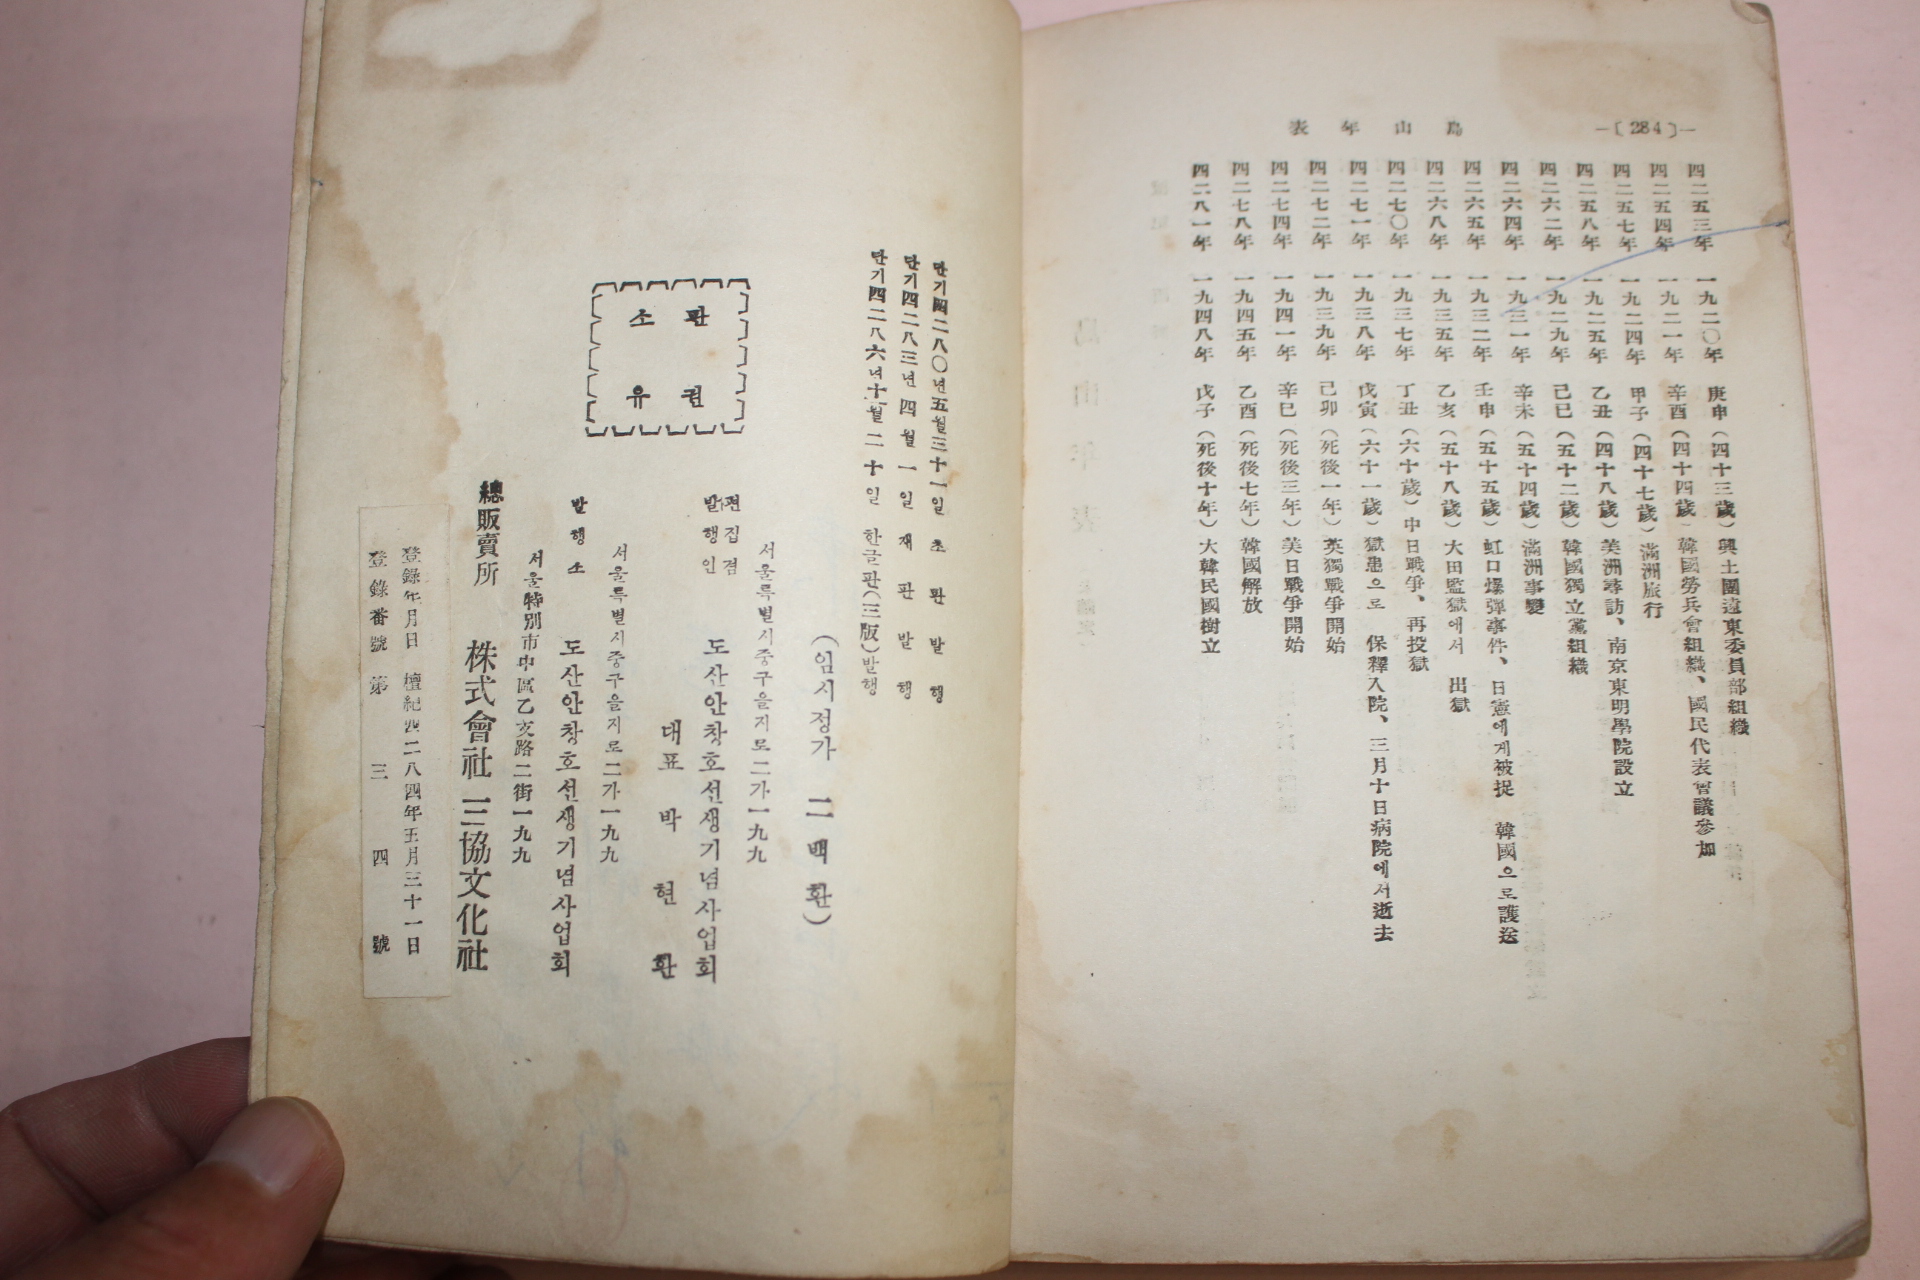 —〔284〕—
島山年表
四二五三年 一九二〇年 庚申(四十三歲) 興士團遠東委員部組織
四二五四年 一九二一年 辛酉(四十四歲) 韓國勞兵會組織、國民代表會議參加
四二五七年 一九二四年 甲子(四十七歲) 滿洲旅行
四二五八年 一九二五年 乙丑(四十八歲) 美洲尋訪、南京東明學院設立
四二六二年 一九二九年 己巳(五十二歲) 韓國獨立黨組織
四二六四年 一九三一年 辛未(五十四歲) 滿洲事變
四二六五年 一九三二年 壬申(五十五歲) 虹口爆彈事件、日憲에게被捉 韓國으로護送
四二六八年 一九三五年 乙亥(五十八歲) 大田監獄에서 出獄
四二七〇年 一九三七年 丁丑(六十歲) 中日戰爭、再投獄
四二七一年 一九三八年 戊寅(六十一歲) 獄患으로 保釋入院、三月十日病院에서逝去
四二七二年 一九三九年 己卯(死後一年) 英獨戰爭開始
四二七四年 一九四一年 辛巳(死後三年) 美日戰爭開始
四二七八年 一九四五年 乙酉(死後七年) 韓國解放
四二八一年 一九四八年 戊子(死後十年) 大韓民國樹立
단기四二八〇년五월三十一일 초판발행
단기四二八三년四월一일 재판발행
단기四二八六년十一월二十일 한글판(三版)발행
(임시정가 二백환)
서울특별시중구을지로二가一九九
편집겸
발행인 도산안창호선생기념사업회
대표 박현환
서울특별시중구을지로二가一九九
발행소 도산안창호선생기념사업회
서울特別市中區乙支路二街一九九
總販賣所 株式會社 三協文化社
판권
소유
登錄年月日 檀紀四二八四年五月三十一日
登錄番號 第三四號